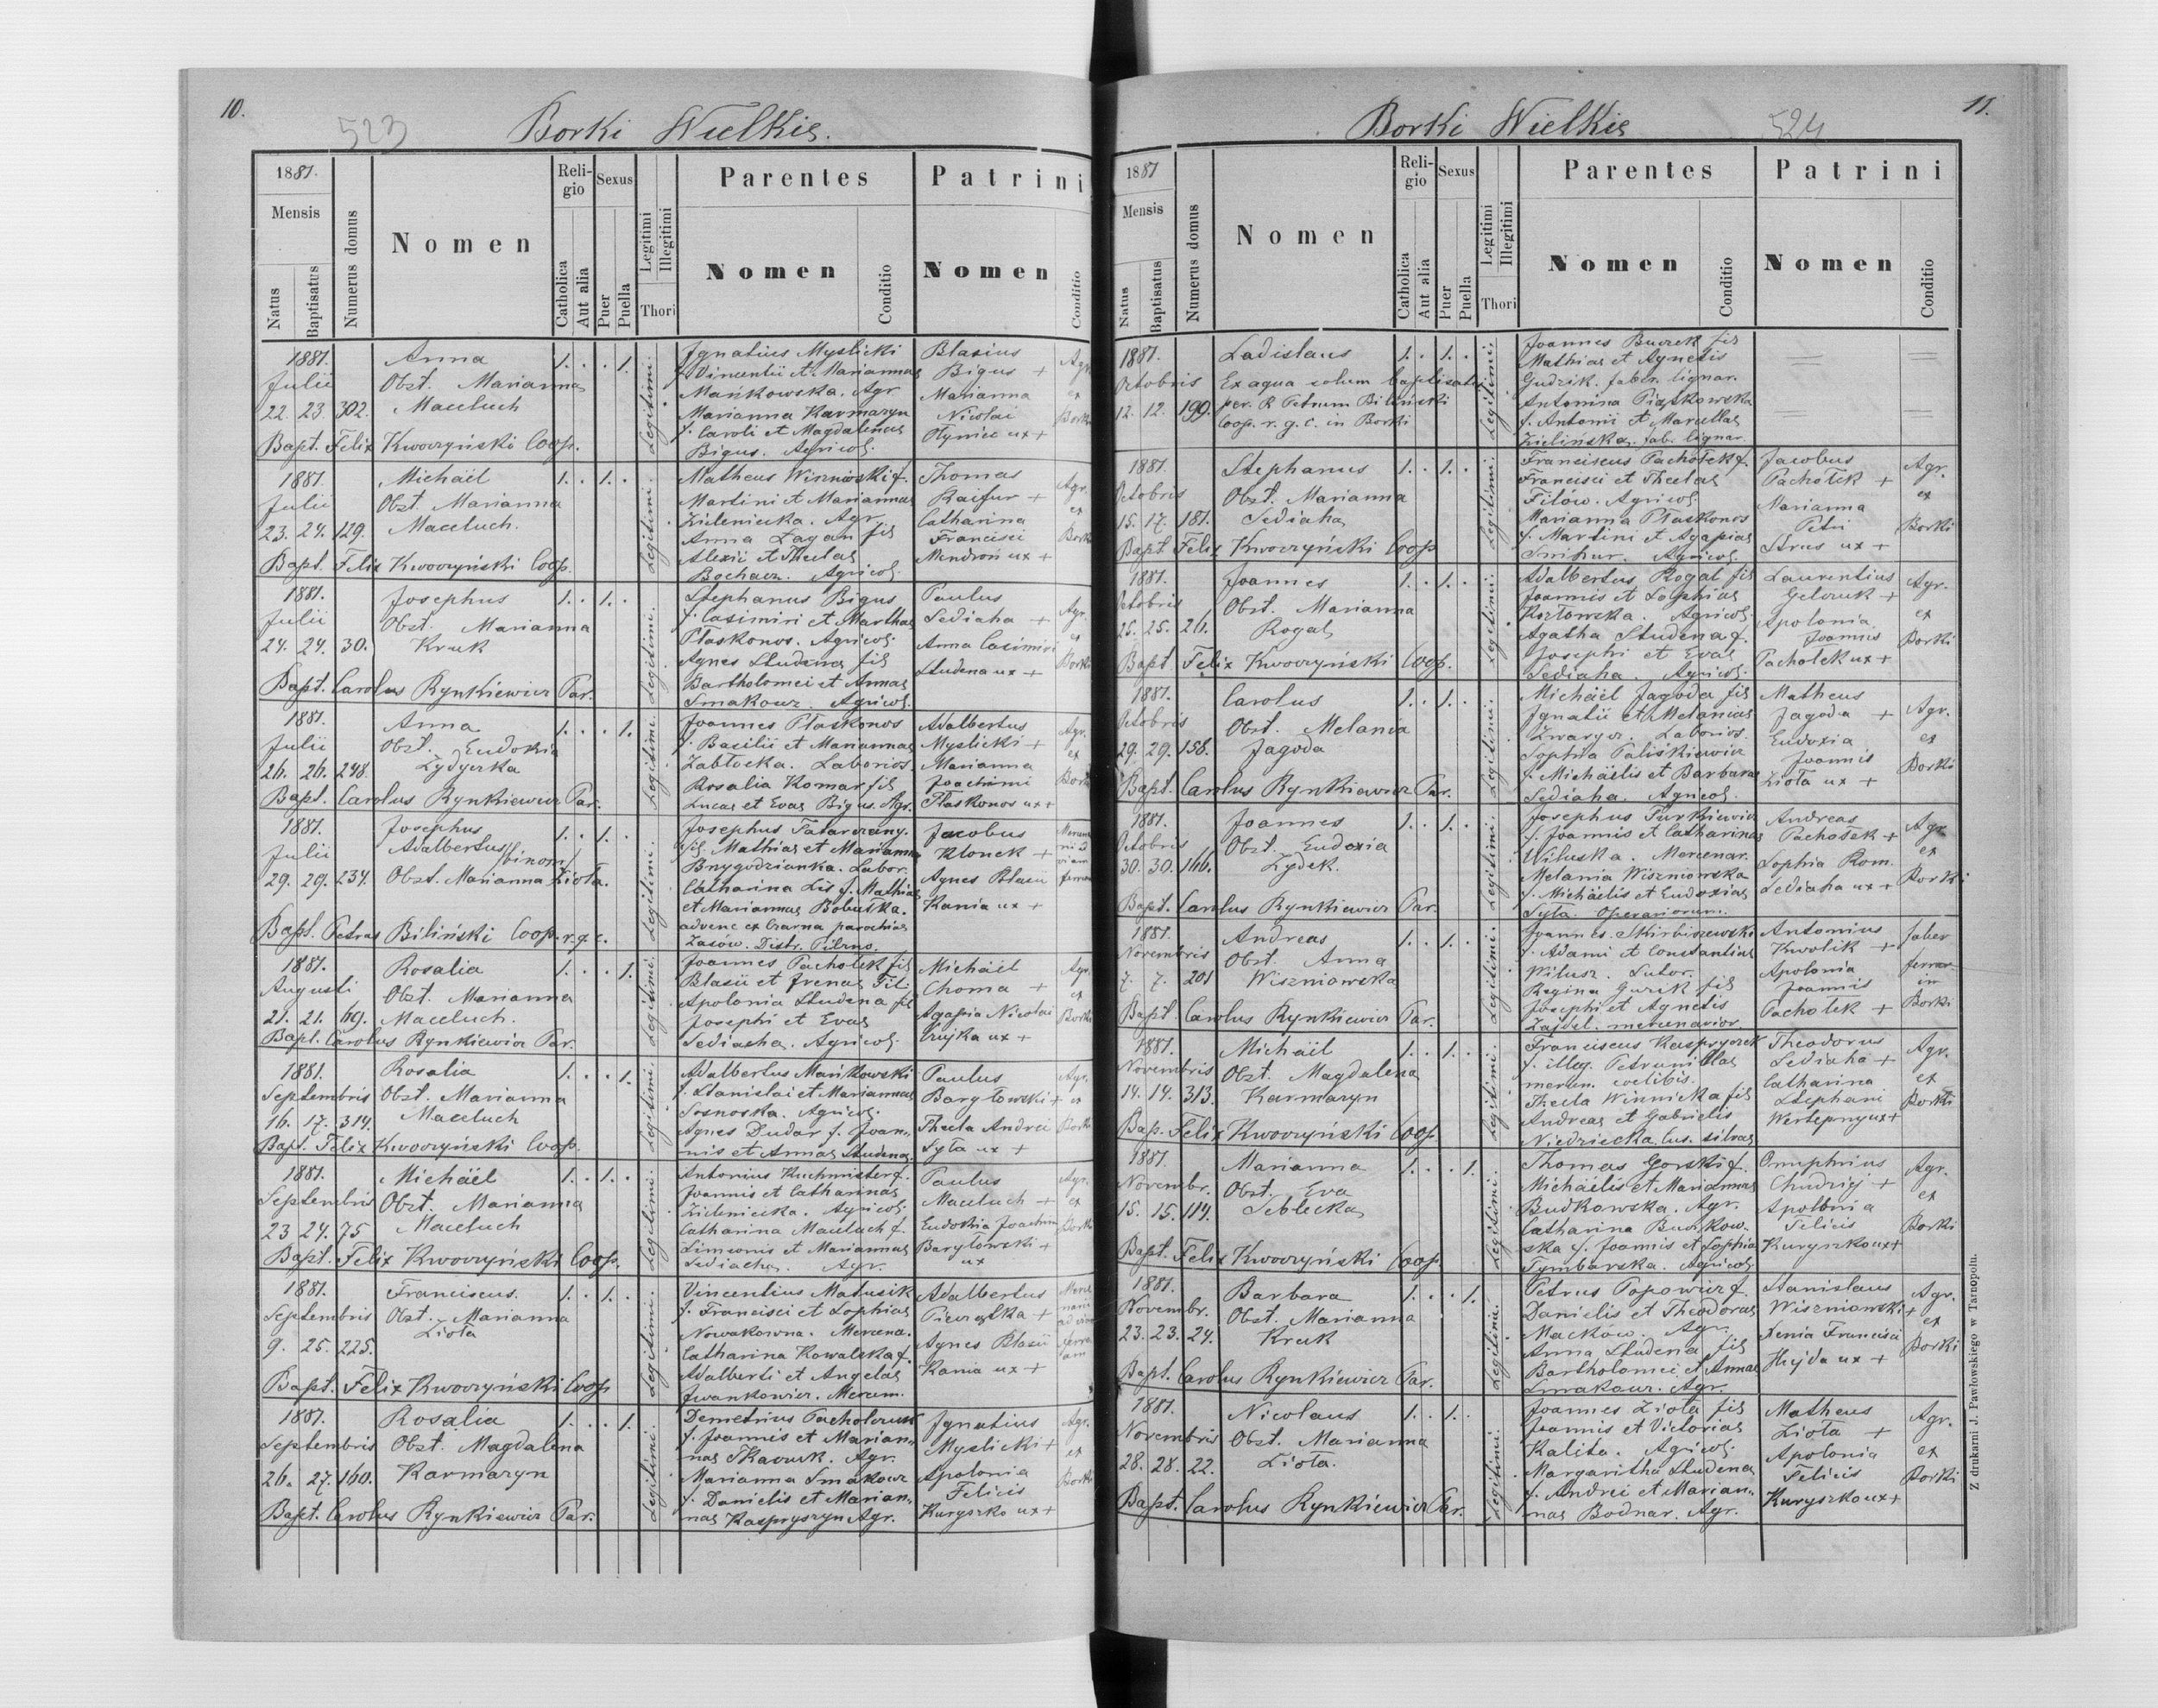 10.
523
Borki Wielkie.
1881.
Mensis
Natus
Baptisatus
Numerus domus
Nomen
Religio
Catholica
Aut alia
Sexus
Puer
Puella
Legitimi
Illegitimi
Thori
Parentes
Nomen
Conditio
Patrini
Nomen
Conditio
1881.
Julii
22. 23. 302.
Anna
Obst. Marianna
Maceluch
1. . . 1.
Legitimi.
Ignatius Myslicki
f. Vincentii et Mariannae
Mańkowska. Agr
Marianna Karmaryn
f. Caroli et Magdalenae
Bigus. Agricol.
Blasius
Bigus +
Marianna
Nicolai
Olynice ux +
Agr.
ex
Borki
Bapt. Felix Kwoczyński Coop.
1881.
Julii
23. 24. 129.
Michaël
Obst. Marianna
Maceluch.
1. . 1. .
Legitimi.
Matheus Wiszniowski f.
Martini et Mariannae
Zieleniecka. Agr.
Anna Łagan fil
Alexii et Theclae
Agricol.
Thomas
Raifur +
Catharina
Francisci
Mendroń ux +
Agr.
ex
Borki
Bapt. Felix Kwoczyński Coop.
1881.
Julii
24. 24. 30.
Josephus
Obst. Marianna
Kruk
1. . 1. .
Legitimi.
Stephanus Bigus
f. Casimiri et Marthae
Płaskonos. Agricol.
Agnes Studena fil
Bartholomei et Annae
Smakouz. Agricol.
Paulus
Sediaha +
Anna Casimiri
Studena ux +
Agr.
ex
Borki
Bapt. Carolus Rynkiewicz Par.
1881.
Julii
26. 26. 248.
Anna
Obst. Eudokia
Żydyczka
1. . . 1.
Legitimi.
Joannes Płaskonos
f. Basilii et Mariannae
Zabłocka. Laborios.
Rosalia Komar fil
Lucae et Evae Bigus. Agr.
Adalbertus
Myslicki +
Marianna
Joachimi
Płaskonos ux +
Agr.
ex
Borki
Bapt. Carolus Rynkiewicz Par.
1881.
Julii
29. 29. 234.
Josephus
Adalbertus /binom/
Obst. Marianna Zioła.
1. . 1. .
Legitimi.
Josephus Tatarczany.
fil. Mathiae et Marianna
Bnygodzianka. Labor.
Catharina Lis f. Mathiae
et Mariannae Bobuška.
advenae ex Czarna parochiae
Zasów. Distr. Pilzno.
Jacobus
Klonek +
Agnes Blasii
Kania ux +
Bapt. Petrus Biliński Coop. r. g. c.
1881.
Augusti
21. 21. 69.
Rosalia
Obst. Marianna
Maceluch.
1. . . 1.
Legitimi.
Joannes Pacholek fil
Blasii et Irenae Fil.
Apolonia Studena fil
Josephi et Evae
Sediacha. Agricol.
Michaël
Choma +
Agapia Nicolai
Crujka ux +
Agr.
ex
Borki
Bapt. Carolus Rynkiewicz Par.
1881.
Septembris
16. 17. 314.
Rosalia
Obst. Marianna
Maceluch
1. . . 1.
Legitimi.
Adalbertus Mańkowski
f. Stanislai et Mariannae
Sosnoska. Agricol.
Agnes Dudar f. Joan-
nis et Annae Studena.
Paulus
Baryłowski +
Thecla Andrei
Syta ux +
Agr.
ex
Borki
Bapt. Felix Kwoczyński Coop.
1881.
Septembris
23 24. 75
Michaël
Obst. Marianna
Maceluch
1. . 1. .
Legitimi.
Antonius Kuchmister f.
Joannis et Catharinae
Zieleniecka. Agricol.
Catharina Maceluch f.
Simeonis et Mariannae
Sediacha. Agr.
Paulus
Maceluch +
Eudokia Joachim
Baryłowski +
ux
Agr.
ex
Borki
Bapt. Felix Kwoczyński Coop.
1881.
Septembris
9. 25. 225.
Franciscus.
Obst. Marianna
Ziota
1. . 1. .
Legitimi.
Vincentius Matusik
f. Francisci et Sophiae
Nowakowna. Mercena.
Catharina Kowalska f.
Adalberti et Angelae
Iwankowicz. Mercen.
Adalbertus
Piewratka +
Agnes Blasii
Kania ux +
Bapt. Felix Kwoczyński Coop
1881.
Septembris
26. 27. 160.
Rosalia
Obst. Magdalena
Karmaryn
1. . . 1.
Legitimi.
Demetrius Pacholczuk
f. Joannis et Marian-
nae Tkaczuk. Agr.
Marianna Smakouz
f. Danielis et Marian-
nae Kaspryszyn Agr.
Ignatius
Myslicki +
Apolonia
Felicis
Kuryszko ux +
Agr.
ex
Borki
Bapt. Carolus Rynkiewicz Par.
11.
524
Borki Wielkie
1881
Mensis
Natus
Baptisatus
Numerus domus
Nomen
Religio
Catholica
Aut alia
Sexus
Puer
Puella
Legitimi
Illegitimi
Thori
Parentes
Nomen
Conditio
Patrini
Nomen
Conditio
1881.
Octobris
12. 12. 199.
Ladislaus
Ex aqua solum baptisatus
per R. Petrum Biliński
Coop. r. g. c. in Borki
1. . 1. .
Legitimi.
Joannes Buczek fil
Mathiae et Agnetis
Gudzik. faber. lignar.
Antonina Piątkowska
f. Antonii et Marcellae
Zielińska. fab. lignar.
1881.
Octobris
15. 17. 181.
Stephanus
Obst. Marianna
Sediaha
1. . 1. .
Legitimi.
Franciscus Pachołek f.
Francisci et Theclae
Filów. Agricol.
Marianna Płaskonos
f. Martini et Agapiae
Snihur. Agricol.
Jacobus
Pachołek +
Marianna
Petri
Strus ux +
Agr.
ex
Borki
Bapt. Felix Kwoczyński Coop
1881.
Octobris
25. 25. 26.
Joannes
Obst. Marianna
Rogal
1. . 1. .
Legitimi.
Adalbertus Rogal fil
Joannis et Sophiae
Kozłowska. Agricol.
Agatha Studena f.
Josephi et Evae
Sediaha. Agricol.
Laurentius
Gelczuk +
Apolonia
Joannis
Pacholek ux +
Agr.
ex
Borki
Bapt. Felix Kwoczyński Coop.
1881.
Octobris
29. 29. 158.
Carolus
Obst. Melania
Jagoda
1. . 1. .
Legitimi.
Michäel Jagoda fil
Ignatii et Melaniae
Zwarycz. Laborios.
Sophia Paliśkiewicz
f. Michäelis et Barbarae
Sediaha. Agricol.
Matheus
Jagoda +
Eudoxia
Joannis
Ziota ux +
Agr.
ex
Borki
Bapt. Carolus Rynkiewicz Par.
1881.
Octobris
30. 30. 166.
Joannes
Obst. Eudoxia
Zydek.
1. . 1. .
Legitimi.
Josephus Turkiewicz
f. Joannis et Catharinae
Wiluska. Mercenar.
Melania Wiszniowska
f. Michäelis et Eudoxiae
Syta. Operariorum.
Andreas
Pachołek +
Sophia Rom.
Sediaha ux +
Agr.
ex
Borki
Bapt. Carolus Rynkiewicz Par.
1881.
Novembris
7. 7. 201
Andreas
Obst. Anna
Wiszniowska
1. . 1. .
Legitimi.
Joannes Skirbiszewski
f. Adami et Constantiae
Wilusz. Sutor.
Regina Guzik fil
Josephi et Agnetis
Zajdel. mercenarior.
Antonius
Kwolik +
Apolonia
Joannis
Pachołek +
faber
ferrar.
in
Borki
Bapt. Carolus Rynkiewicz Par.
1881.
Novembris
14. 14. 313.
Michäil
Obst. Magdalena
Karmaryn
1. . 1. .
Legitimi.
Franciscus Kaspryczek
f. illeg. Petrunillae
mercen. coelibis.
Thecla Winnicka fil
Andreae et Gabrielis
Niedziecka. Cus. silvae
Theodorus
Sediaha +
Catharina
Stephani
Wertepny ux +
Agr.
ex
Borki
Bap. Felix Kwoczyński Coop
1881.
Novembr.
15. 15. 114.
Marianna
Obst. Eva
Seblecka
1. . . 1.
Legitimi.
Thomas Gorski f.
Michäelis et Mariannae
Budkowska. Agr.
Catharina Burkow-
ska f. Joannis et Sophia
Symbarska. Agricol.
Onuphrius
Chudzij +
Apolonia
Felicis
Kuryszko ux +
Agr.
ex
Borki
Bapt. Felix Kwoczyński Coop
1881.
Novembr.
23. 23. 24.
Barbara
Obst. Marianna
Kruk
1. . . 1.
Legitimi.
Petrus Popowicz f.
Danielis et Theodorae
Maćkow. Agr.
Anna Studena fil
Bartholomei et Annae
Smakouz. Agr.
Stanislaus
Wiszniowski +
Xenia Francisci
Hejda ux +
Agr.
ex
Borki
Bapt. Carolus Rynkiewicz Par.
1881.
Novembris
28. 28. 22.
Nicolaus
Obst. Marianna
Ziota.
1. . 1. .
Legitimi.
Joannes Ziota fil
Joannis et Victoriae
Kalita. Agricol.
Margaritha Studena
f. Andrei et Marian-
nae Bodnar. Agr.
Matheus
Ziota +
Apolonia
Felicis
Kuryszko ux +
Agr.
ex
Borki
Bapt. Carolus Rynkiewicz Par.
Z drukarni J. Pawłowskiego w Tarnopolu.